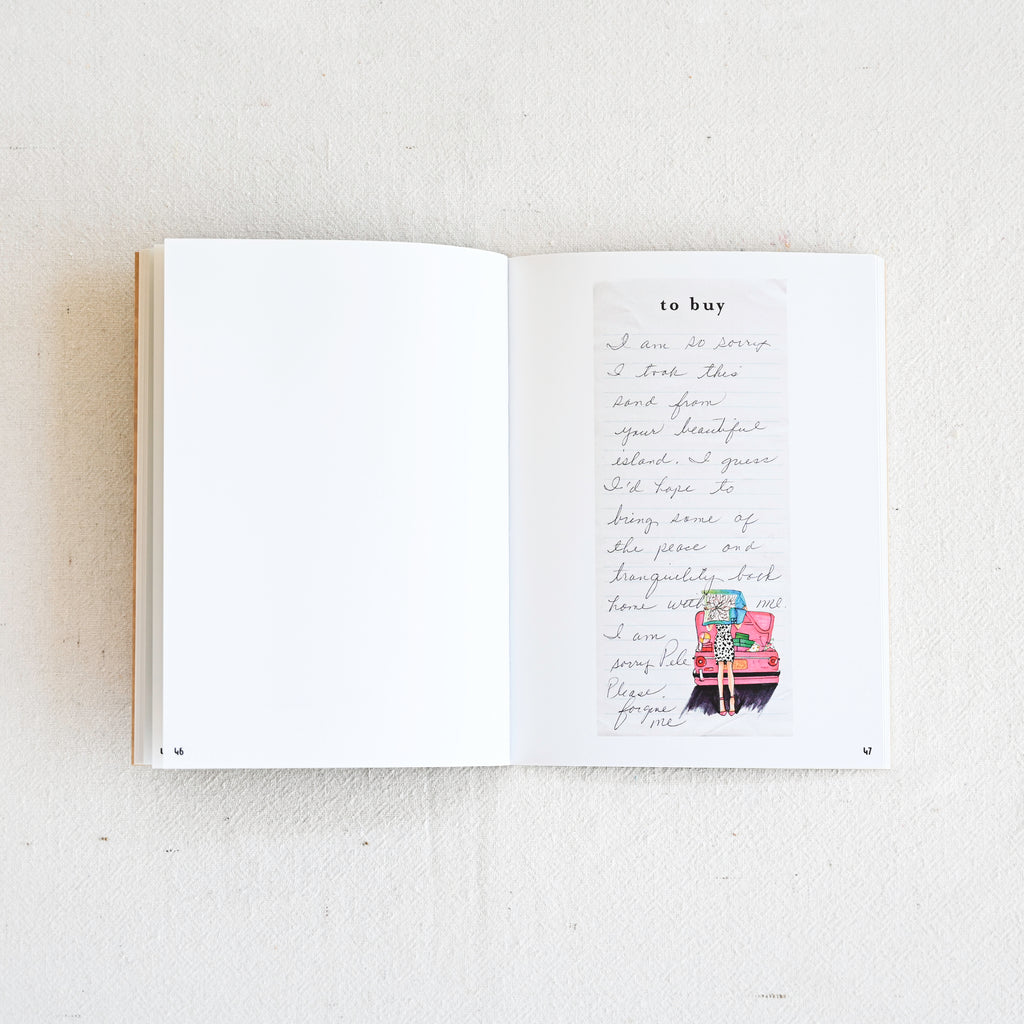 to buy
I am so sorry
I took this
sand from
your beautiful
island. I guess
I'd hope to
bring some of
the peace and
tranquility back
home with me.
I am
sorry Pele
Please.
forgive
me
46
47